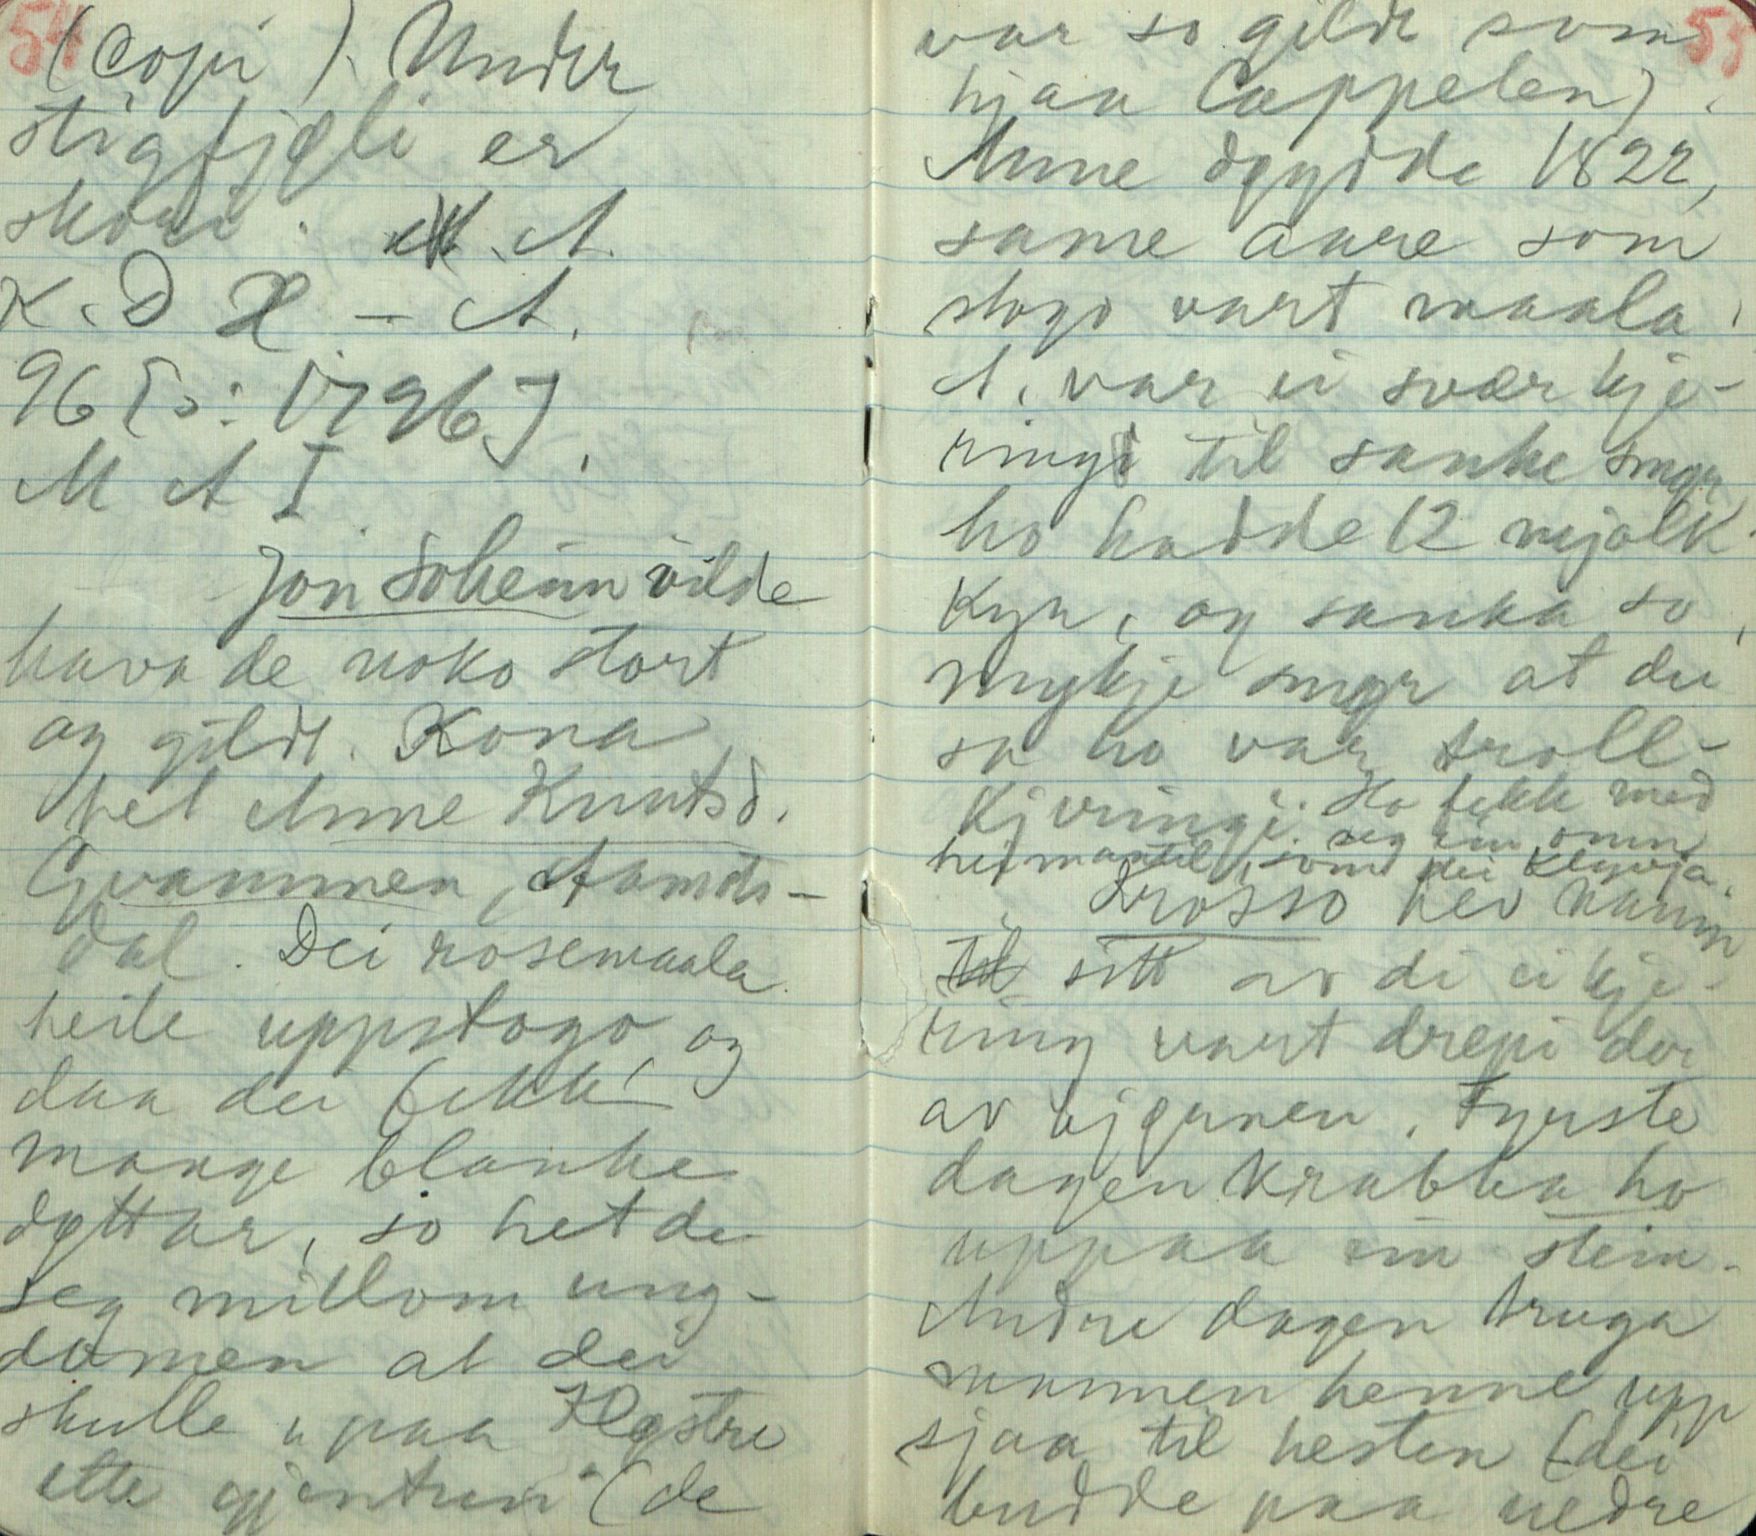 54
(Copi). Under
stigfjøli er
skori: A.
K. D. – A.
96 [ɔ: 1796].
M A I
Jon Solheim vilde
hava de noko stort
og gildt. Kona
het Anne Knutsd.
Gvammen, Aamots-
dal. Dei rosemaala
heile uppstogo, og
daa dei fekk
mange blanke
døttar, so het de
seg millom ung-
domen at dei
skulle "paa Hegstre
ette gjenturi" (de
55
var so gildt som
hjaa Cappelen).
Anne døydde 1822,
same aare som
stogo vart maala.
A. var ei svær kje-
ring til sanke smør
ho hadde 12 mjølk-
kyr, og sanka so
mykje smør at dei
sa ho var troll-
kjeringi. Ho fekk med
seg ein omn
heimantil, som dei kløyvja.
Krosso hev namn
til sitt av di ei kje-
ring vart drepi der
av bjørnen. Fyrste
dagen krabba ho
uppaa ein stein.
Andre dagen truga
mannen henne upp
sjaa til hesten (dei
budde paa nedre